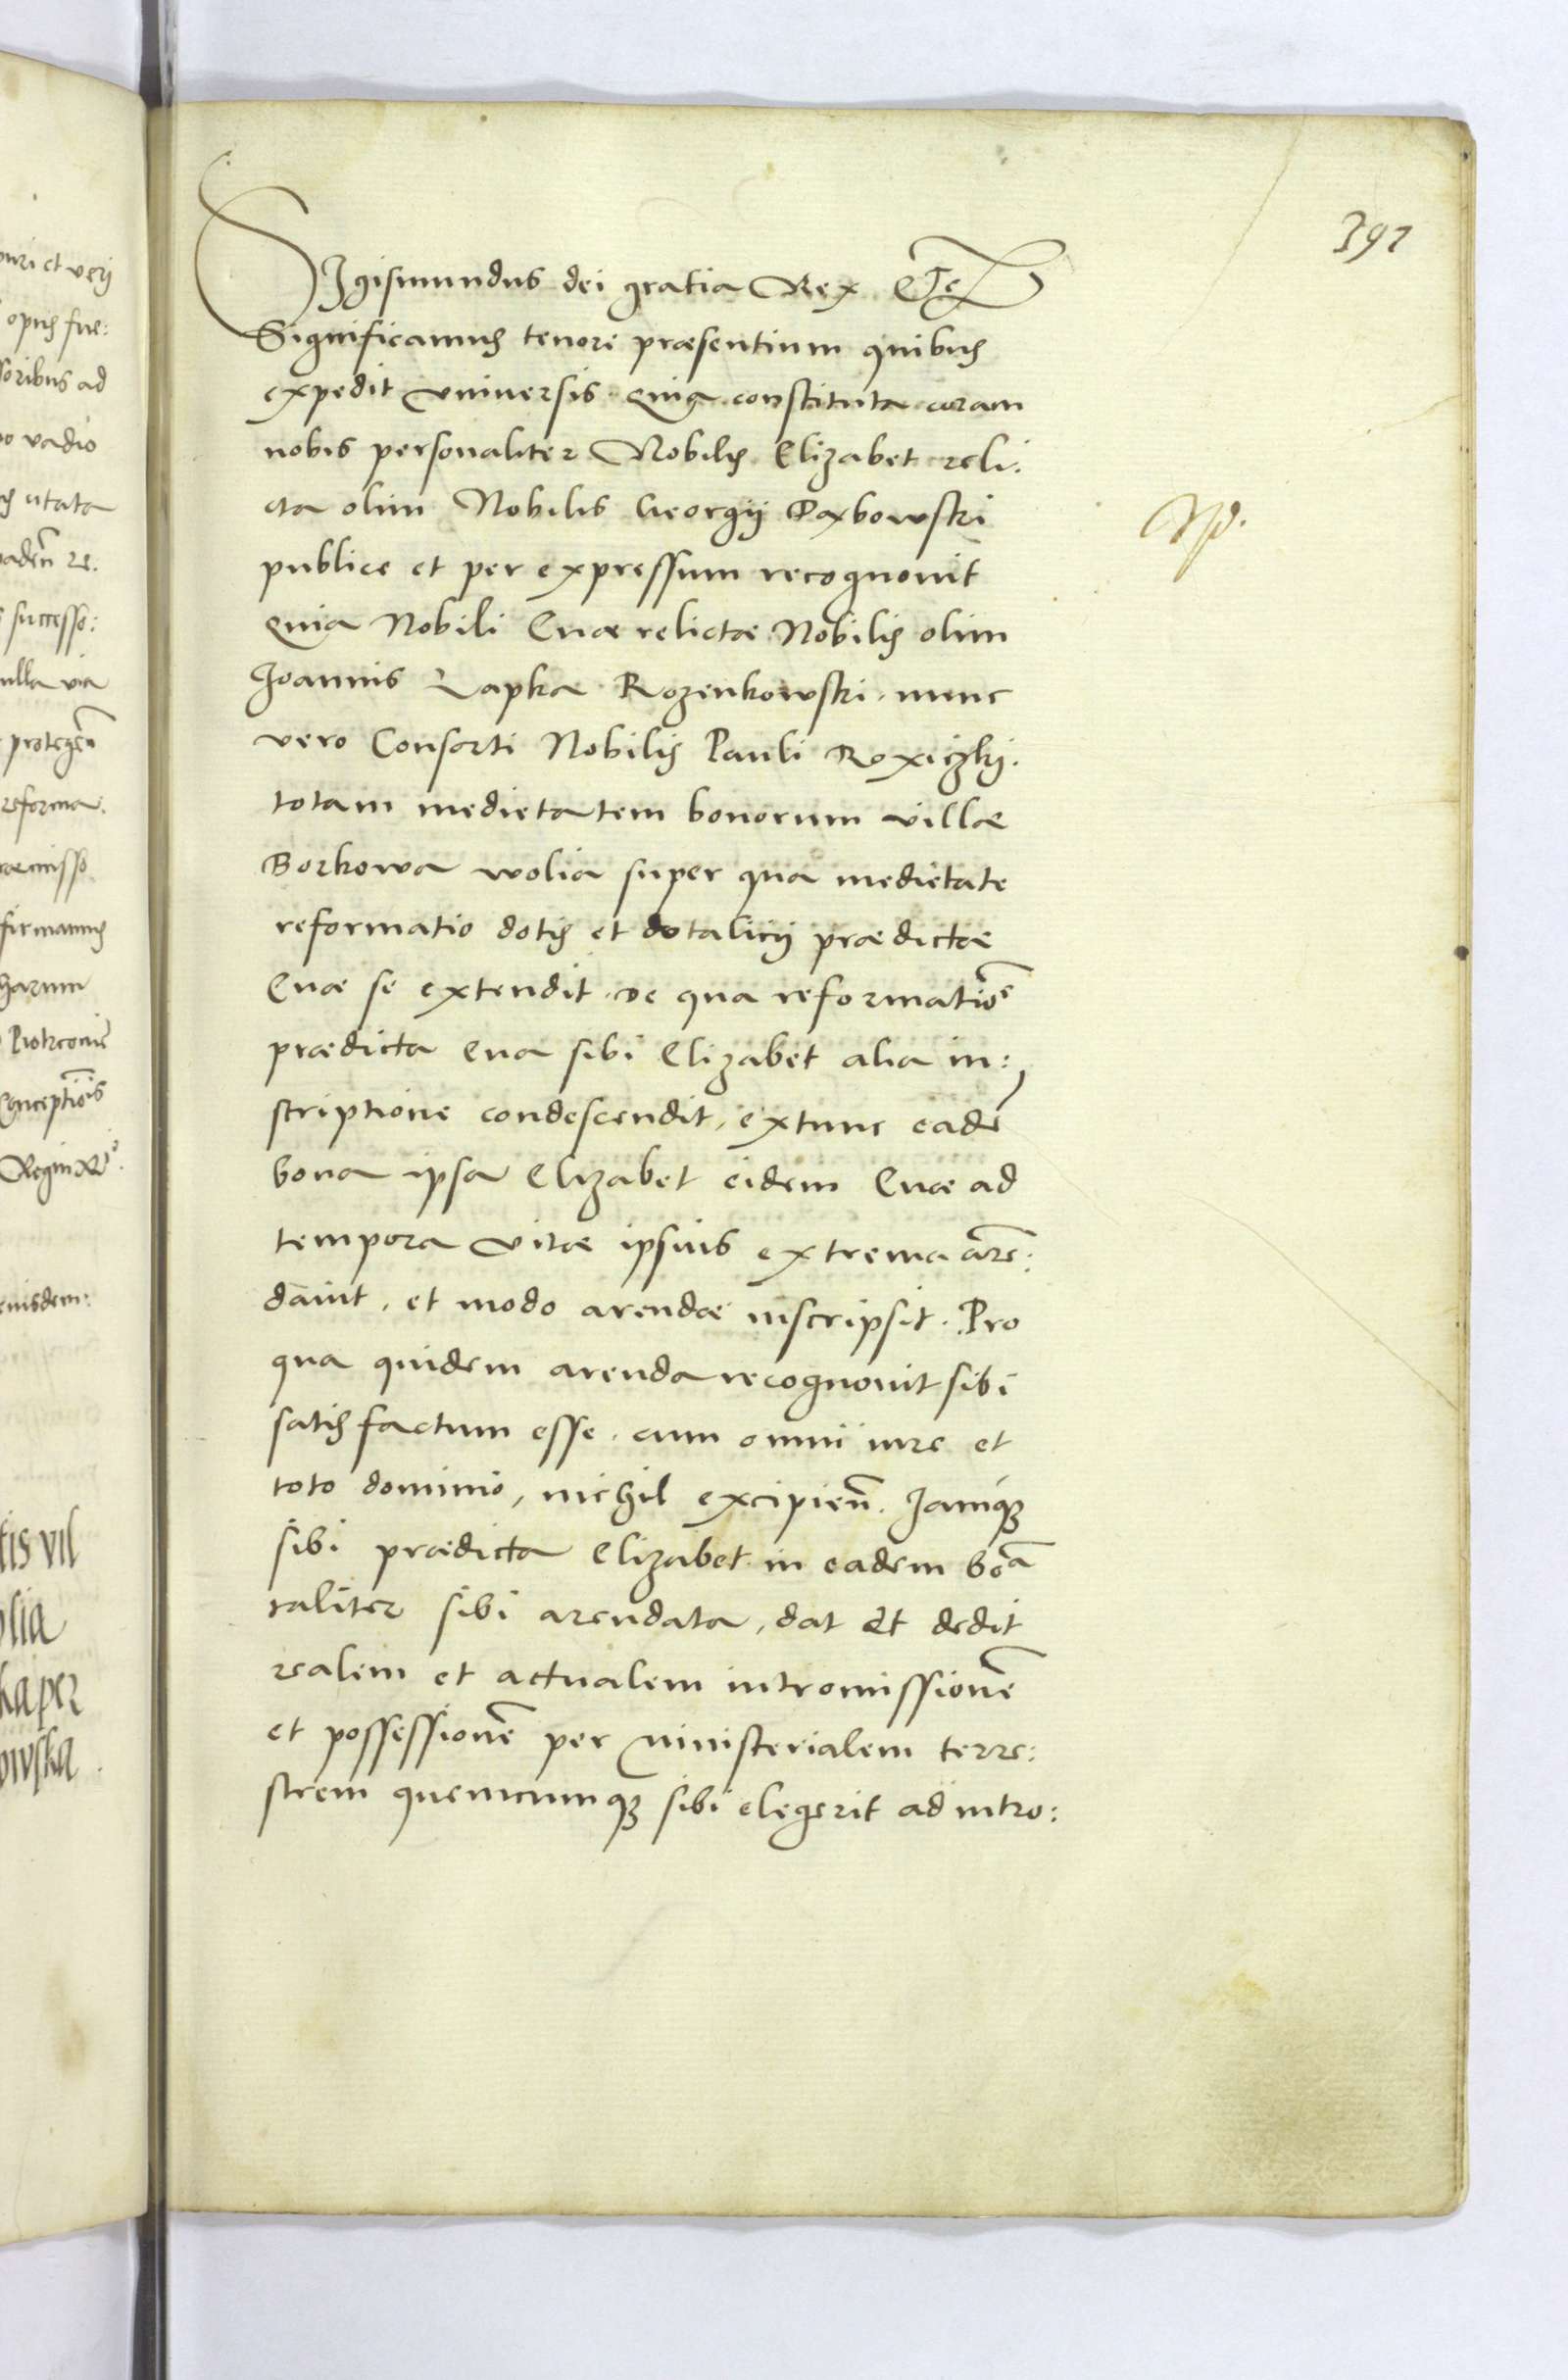 391
SIgismundus dei gratia Rex Etc
Significamus tenore præsentium quibus
expedit vniuersis quia constituta coram
nobis personaliter Nobilis Elizabet reli:
cta olim Nobilis Georgij Paxbowski
publice et per expressum recognouit
quia Nobili Euæ relictæ Nobilis olim
Joannis Lapka Rozenkowski nunc
vero Consorti Nobilis Pauli Roxiczkj.
totam medietatem bonorum villæ
Borkowa wolia super qua medietate
reformatio dotis et dotalicij prædictæ
Euæ se extendit de qua reformatiōe
prædicta Eua sibi Elizabet alia in:
scriptione condescendit, extunc eadē
bona ipsa Elizabet eidem Euæ ad
tempora vitæ ipsius extrema are:
dauit, et modo arendæ inscripsit. Pro
qua quidem arenda recognouit sibi
satisfactum esse, cum omni iure et
toto dominio, nichil excipien̄. Jamq3
sibi prædicta Elizabet in eadem boā
taliter sibi arendata, dat et dedit
realem et actualem intromissionē
et possessionē per ministerialem terre:
strem quemcumq3 sibi elegerit ad intro:
puri et verj
opus fue:
soribus ad
vadio
utata
re.
successo:
ulla via
protegen̄
reforma.
firmamus
harum
Conceptiōis
eiusdem:
tis vil
olia
ka per
owska.